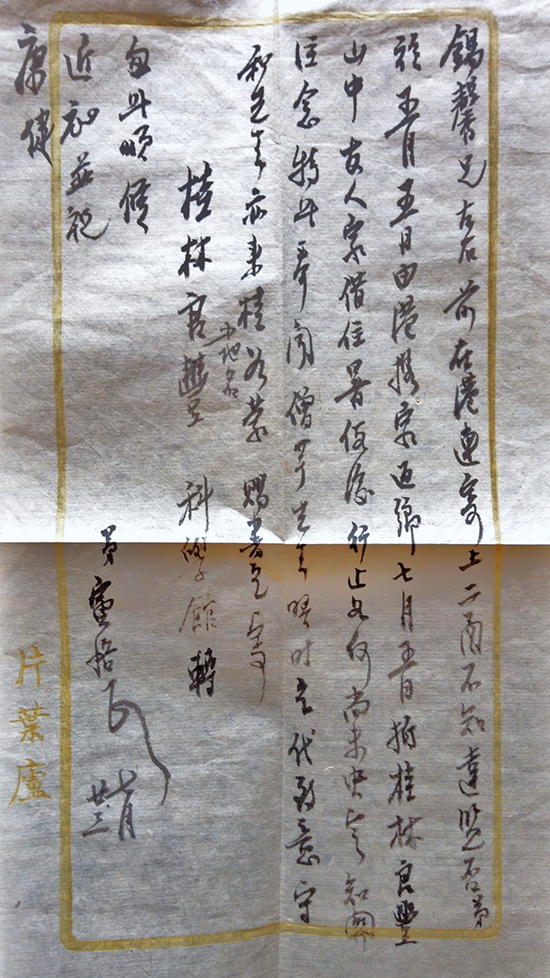 錫馨兄左右前在港連寄上二函不知達覽否弟
五月五日由港携家返鄉七月抵桂林良豐
山中友人家借住暑假後行止如何尚未決定知關
注念特此奉聞僧先生晤時乞代致意守
和先生亦來桂如蒙賜書乞寄
地名
桂林良豐 科學館轉
匆此順候
近祉並祝
康健
弟
七月
廿三
片葉廬